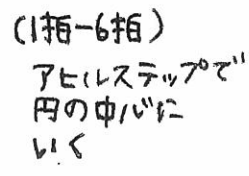 (1拍-6拍)
アヒルステップで
円の中心に
いく